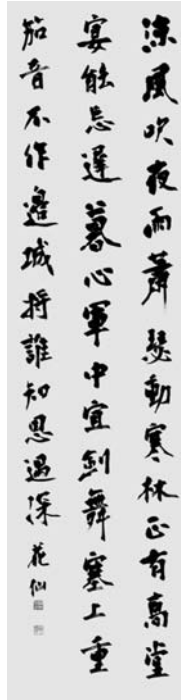 涼風吹夜雨蕭瑟動寒林正有高堂
宴能忘遲暮心軍中宜劍舞塞上重
笳音不作邊城將誰知恩遇深 花仙